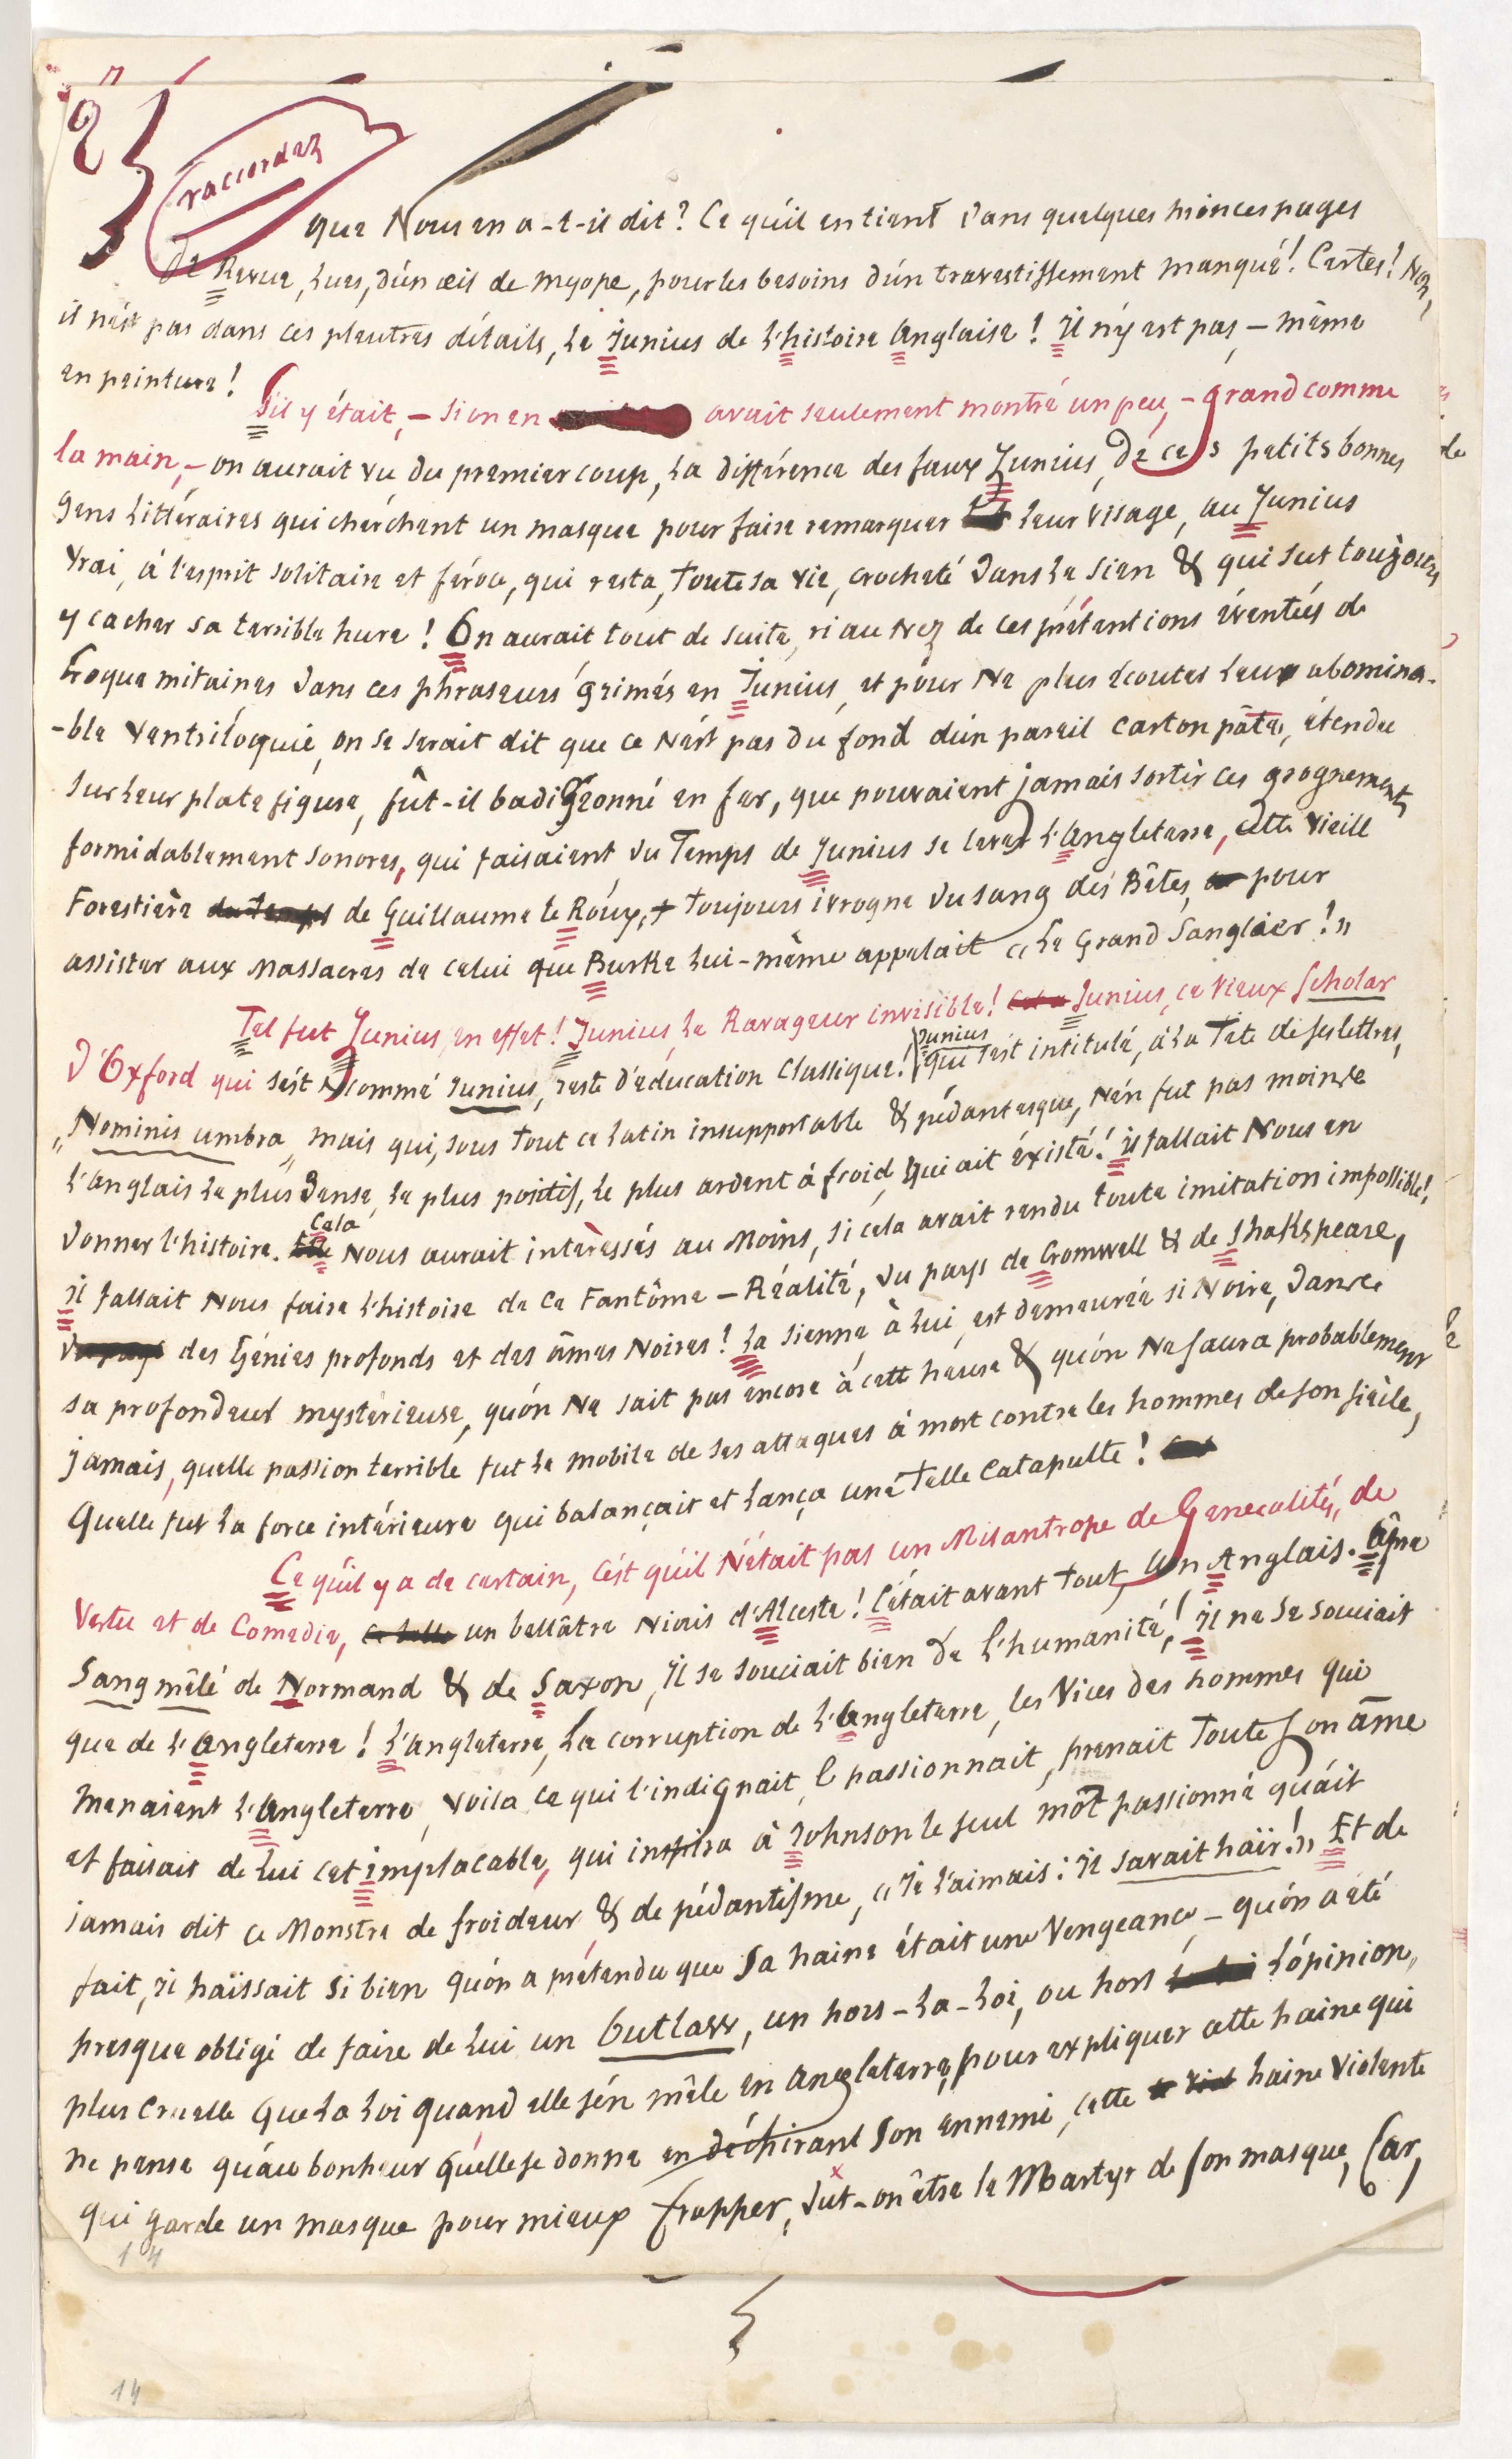 2
raccordez
Que Nous en a-t-il dit? Ce qu'il en tient dans quelques minces pages
de Revue, lues, d'un œil de myope, pour les besoins d'un travestissement manqué! Certes! Non,
il n'est pas dans ces pleutres détails, le Junius de l'histoire Anglaise! Il n'y est pas, – même
en peinture!
S'il y était, – si on en avait seulement montré un peu, – grand comme
la main, – on aurait vu du premier coup, la différence des faux Junius, de ces petits bonnes
gens littéraires qui cherchent un masque pour faire remarquer leur visage, au Junius
vrai, à l'esprit solitaire et féroce, qui resta, toute sa vie, crocheté dans le sien & qui sut toujours
y cacher sa terrible hure! On aurait tout de suite, ri au Nez de ces prétentions éventées de
Croquemitaines dans ces phraseurs grimés en Junius, et pour Ne plus écouter leur abomina-
-ble ventriloquie, on se serait dit que ce N'est pas du fond d'un pareil carton pâte, étendu
sur leur plate figure, fût-il badigeonné en fer, que pouvaient jamais sortir ces grognements
formidablement sonores, qui faisaient, du Temps de Junius se lever l'Angleterre, cette vieille
Forestière du temps de Guillaume le Roux, toujours ivrogne du sang des Bêtes, pour
assister aux Massacres de celui que Burke lui-même appelait « le Grand Sanglier! »
Tel fut Junius, en effet! Junius, le Ravageur invisible! Junius, ce vieux Scholar
d'Oxford qui s'est Nommé Junius, reste d'éducation classique! Junius qui s'est intitulé, à la Tête de ses lettres,
« Nominis umbra » mais qui, sous tout ce latin insupportable & pédantesque, N'en fut pas moins le
l'anglais le plus dense, le plus positif, le plus ardent à froid, qui ait existé! il fallait Nous en
donner l'histoire. Cela Nous aurait intéressés au Moins, si cela avait rendu toute imitation impossible!
Il fallait Nous faire l'histoire de ce Fantôme – Réalité, du pays de Cromwell & de Shakspeare,
du pays des Génies profonds et des âmes Noires! La sienne, à lui, est demeurée si Noire, dans
sa profondeur mystérieuse, qu'on Ne sait pas encore à cette heure & qu'on Ne saura probablement
jamais, quelle passion terrible fut le mobile de ses attaques à mort contre les hommes de son siècle,
Quelle fut la force intérieure qui balançait et lança une Telle Catapulte!
Ce qu'il y a de certain, c'est qu'il N'était pas un Misantrope de Généralités, de
Vertu et de Comédie, un bellâtre Niais d'Alceste! C'était avant Tout, un Anglais. Âpre
Sang mêlé de Normand & de Saxon, il se souciait bien de l'humanité! il ne se souciait
que de l'Angleterre! L'Angleterre, la corruption de l'Angleterre, les Vices des hommes qui
menaient l'Angleterre, voilà ce qui l'indignait, le passionnait, prenait Toute son âme
et faisait de lui cet implacable, qui inspira à Johnson le seul môt passionné qu'ait
jamais dit ce Monstre de froideur & de pédantisme, « Je l'aimais: il savait haïr! » Et de
fait, il haïssait si bien qu'on a prétendu que sa haine était une Vengeance, – qu'on a été
presque obligé de faire de lui un Outlaw, un hors-la-loi, ou hors l'opinion,
plus cruelle Que la loi quand elle s'en mêle en Angleterre, pour expliquer cette haine qui
ne pense qu'au bonheur Qu'elle se donne en déchirant son ennemi, cette haine violente
qui garde un masque pour mieux frapper, dût-on être le Martyr de son masque, Car,
14
14